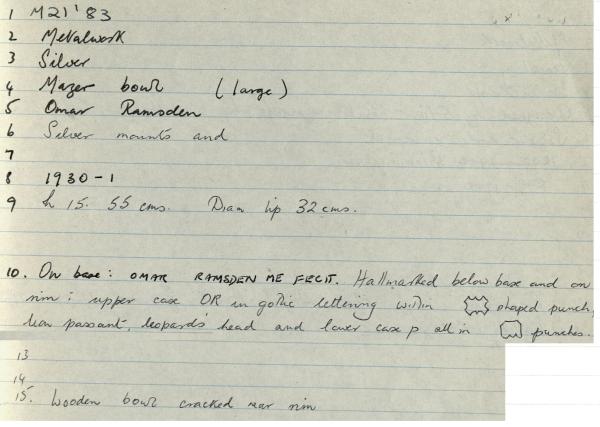 1 M21'83
2 Metalwork
3 Silver
4 Mazer bowl (large)
5 Omar Ramsden
6 Silver mounts and
7
8 1930-1
9 h 15.55 cms. Diam lip 32 cms.
10. On base: OMAR RAMSDEN ME FECIT. Hallmarked below base and on
rim: upper case OR in gothic lettering within shaped punch,
lion passant, leopard's head and lower case p all in punches.
13
14
15. Wooden bowl cracked near rim